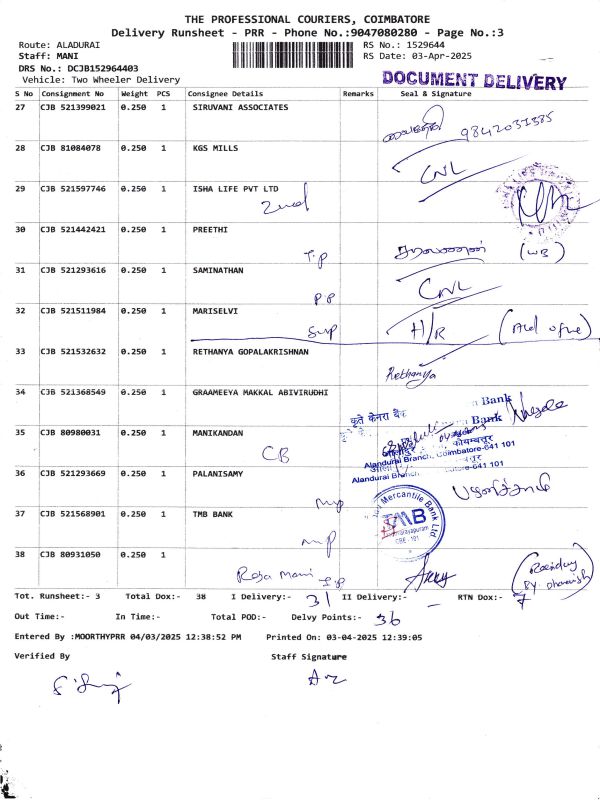 THE PROFESSIONAL COURIERS, COIMBATORE
Delivery Runsheet - PRR - Phone No.:9047080280 - Page No.:3
Route: ALADURAI RS No.: 1529644
Staff: MANI RS Date: 03-Apr-2025
DRS No.: DCJB152964403
Vehicle: Two Wheeler Delivery
DOCUMENT DELIVERY
S No Consignment No Weight PCS Consignee Details Remarks Seal & Signature
27 CJB 521399021 0.250 1 SIRUVANI ASSOCIATES
9842031385
28 CJB 81084078 0.250 1 KGS MILLS
CNL
29 CJB 521597746 0.250 1 ISHA LIFE PVT LTD
30 CJB 521442421 0.250 1 PREETHI
T.P
31 CJB 521293616 0.250 1 SAMINATHAN
P.P CNL
32 CJB 521511984 0.250 1 MARISELVI
H/R
33 CJB 521532632 0.250 1 RETHANYA GOPALAKRISHNAN
Rethanya
34 CJB 521368549 0.250 1 GRAAMEEYA MAKKAL ABIVIRUDHI
Bank
कृते केनरा बैंक Bank
35 CJB 80980031 0.250 1 MANIKANDAN
कोयम्बत्तूर
CB Alandurai Branch, Coimbatore-641 101
36 CJB 521293669 0.250 1 PALANISAMY
Alandurai Branch
பழனிச்சாமி
37 CJB 521568901 0.250 1 TMB BANK
Mercantile Bank Ltd
TMB
CBE - 101
38 CJB 80931050 0.250 1
Roja Mani
Tot. Runsheet:- 3 Total Dox:- 38 I Delivery:- 31 II Delivery:- RTN Dox:- 7
Out Time:- In Time:- Total POD:- Delvy Points:- 36
Entered By :MOORTHYPRR 04/03/2025 12:38:52 PM Printed On: 03-04-2025 12:39:05
Verified By Staff Signature